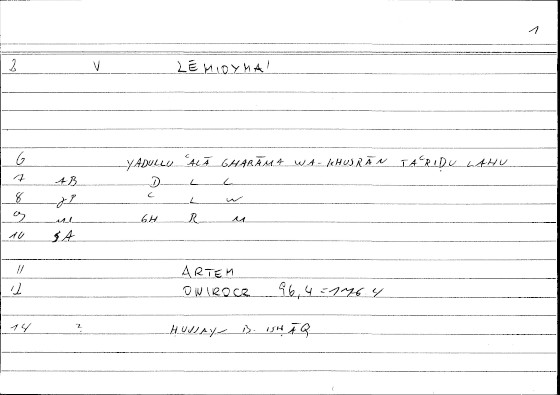 1
3 V ZĒMIOYMAI
6 YADULLU ʿALĀ GHARĀMA WA-KHUSRĀN TAʿRIḌU LAHU
7 AB D L L
8 ʿ L W
9 GH R M
10 SA
11 ARTEM
12 ONIROCR 96,4 = 176 4
14 ? ḤUNAYN B. ISḤĀQ